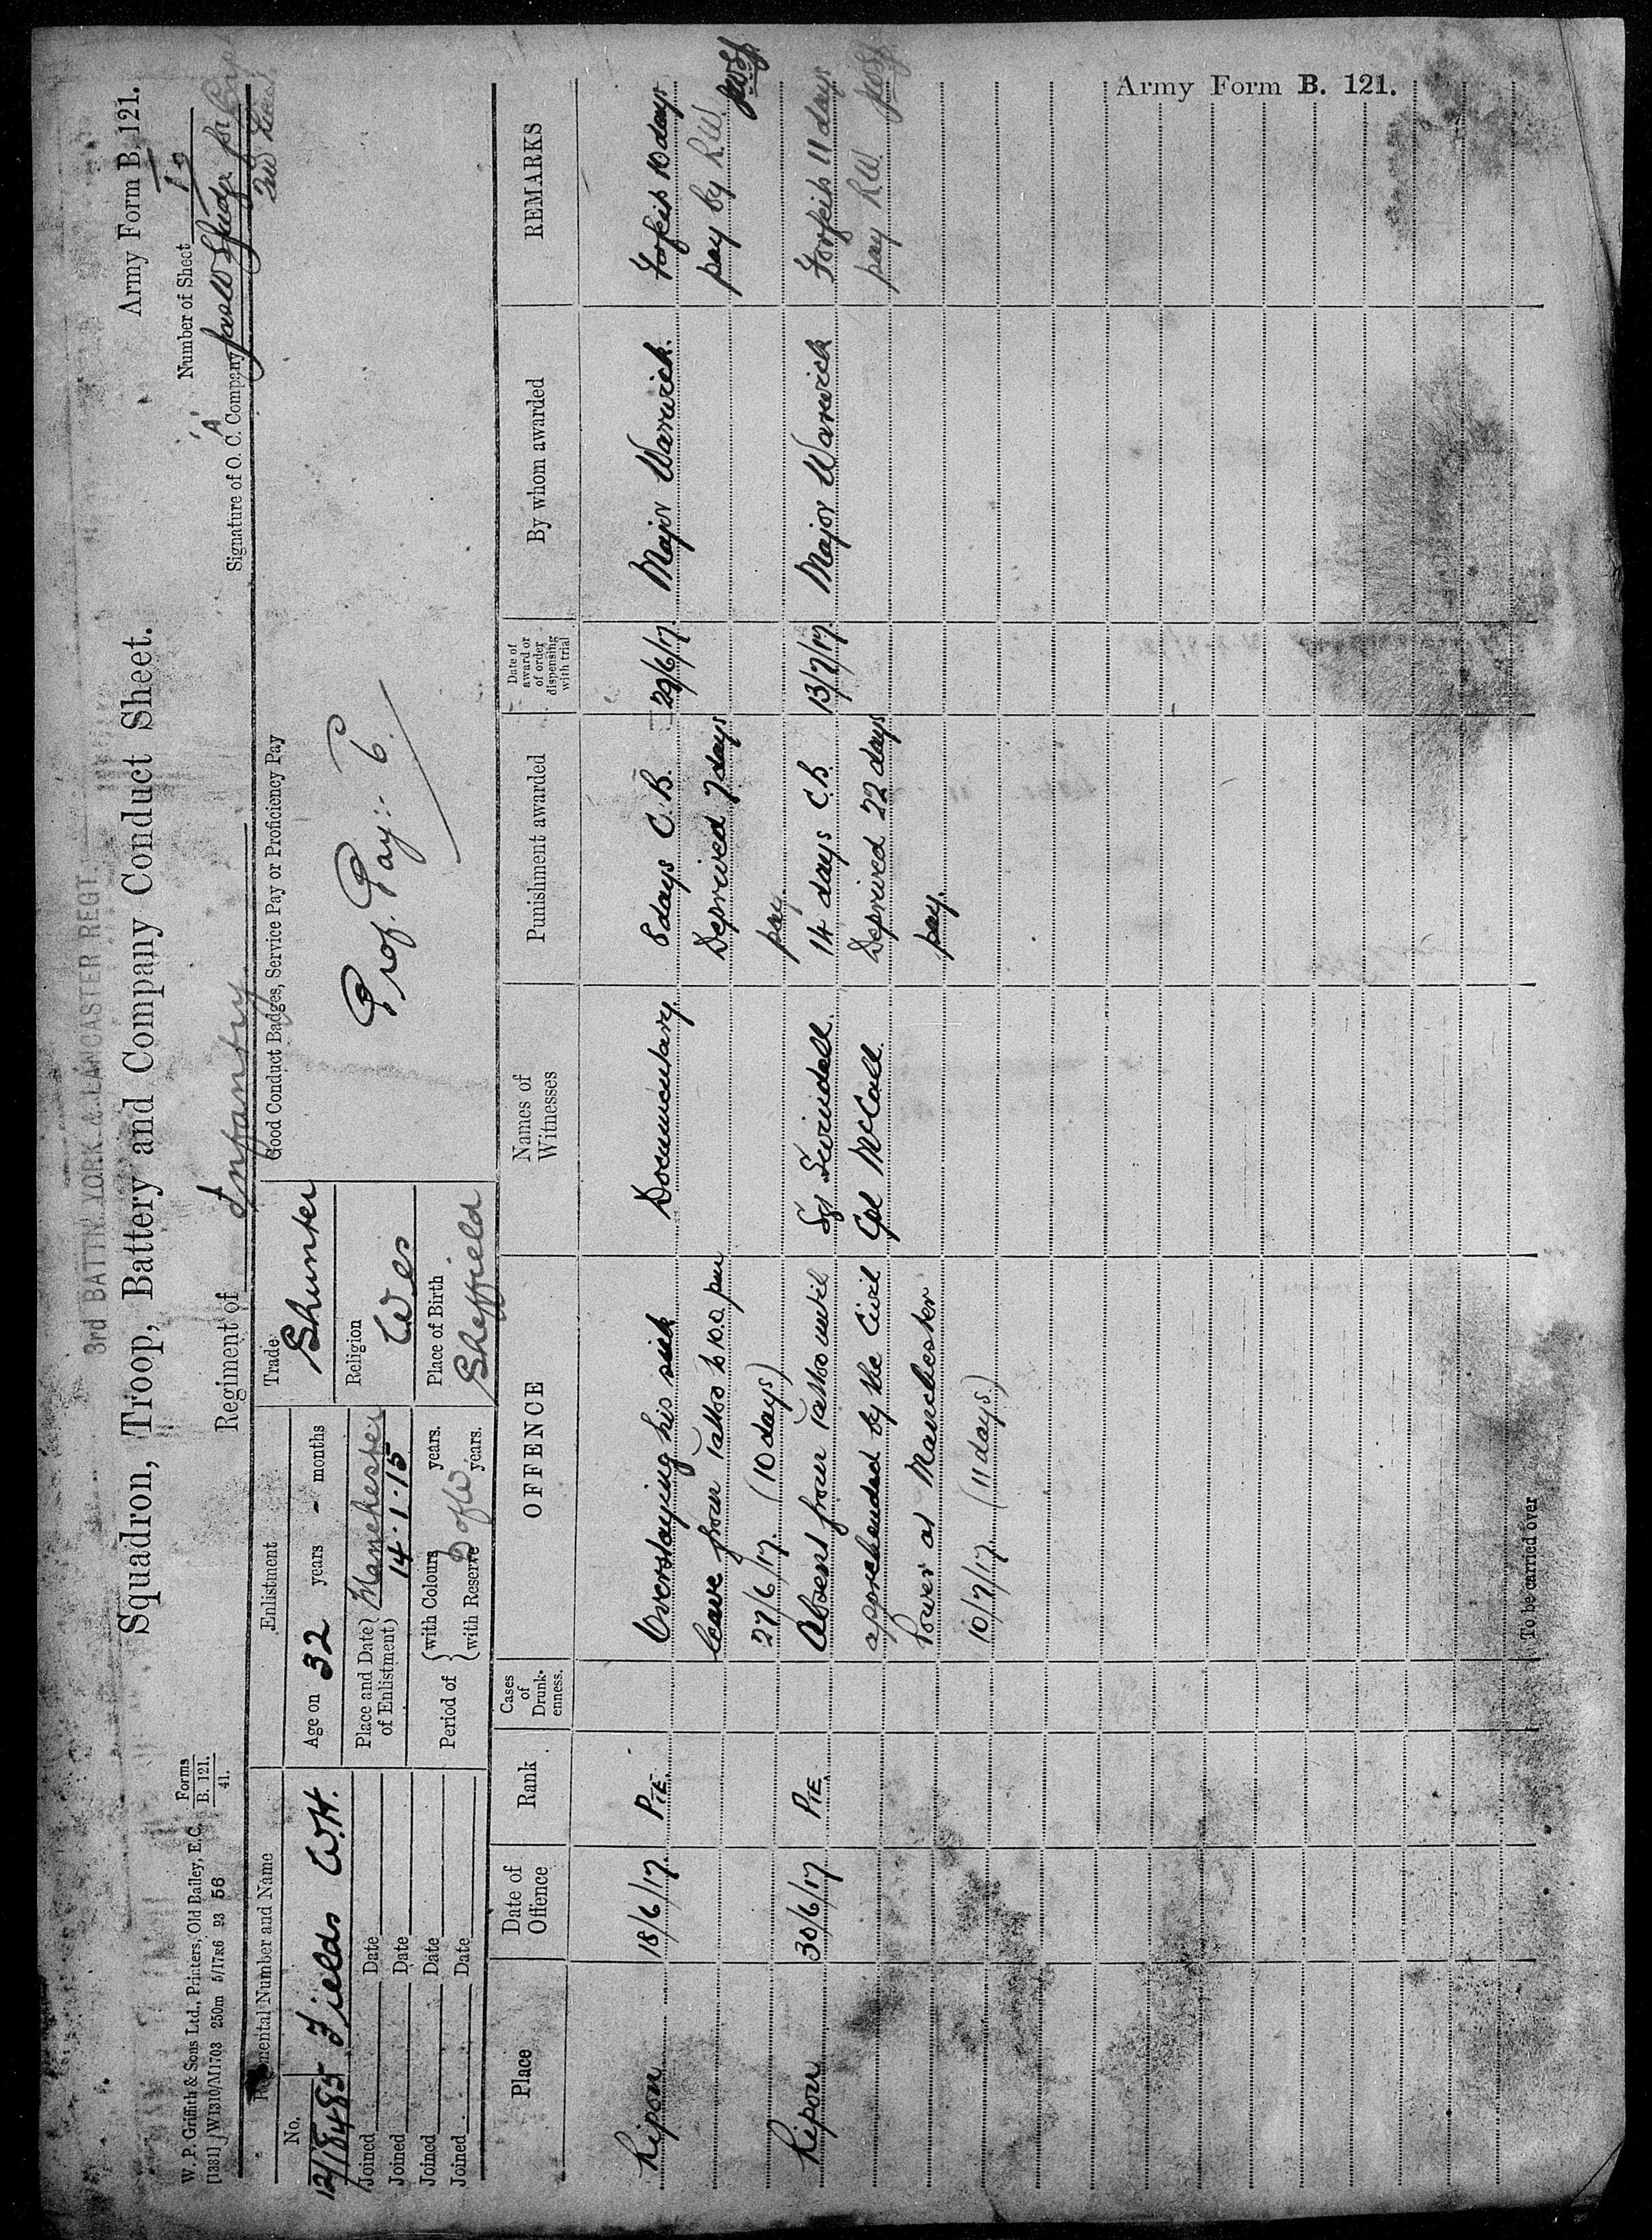 3rd BATTN. YORK & LANCASTER REGT.
Squadron, Troop, Battery and Company Conduct Sheet.
Army Form B. 121.
W. P. Griffith & Sons Ltd., Printers, Old Bailey, E.C.
Forms
B. 121.
41.
[1331] /W1310/M1703 250m 5/17R6 93 56
Regiment of Infantry
Number of Sheet
'A'
Signature of O. C. Company
Regimental Number and Name
No.
Fields W.H.
Joined Date
Joined Date
Joined Date
Joined Date
Enlistment
Age on 32 years - months
Place and Date of Enlistment
Manchester
14.1.15
Period of
with Colours years.
with Reserve years.
D of W
Trade
Shunter
Religion
Wes
Place of Birth
Sheffield
Good Conduct Badges, Service Pay or Proficiency Pay
Prof. Pay:-
Place
Date of Offence
Rank
Cases of Drunk-enness.
OFFENCE
Names of Witnesses
Punishment awarded
Date of award or of order dispensing with trial
By whom awarded
REMARKS
Ripon 18/6/17. Pte. Overstaying his sick Documentary. 8 days C.B. 29/6/17. Major Warwick. Forfeits 10 days
leave from Tattoo to 10.0. pm Deprived 7 days pay by R.W.
27/6/17. (10 days) pay.
Ripon 30/6/17. Pte. Absent from Tattoo until Sgt Swindell. 14 days C.B. 13/7/17. Major Warwick Forfeits 11 days
apprehended by the Civil Cpl McCall. Deprived 22 days pay R.W.
Power at Manchester pay.
10/7/17. (11 days.)
To be carried over
Army Form B. 121.